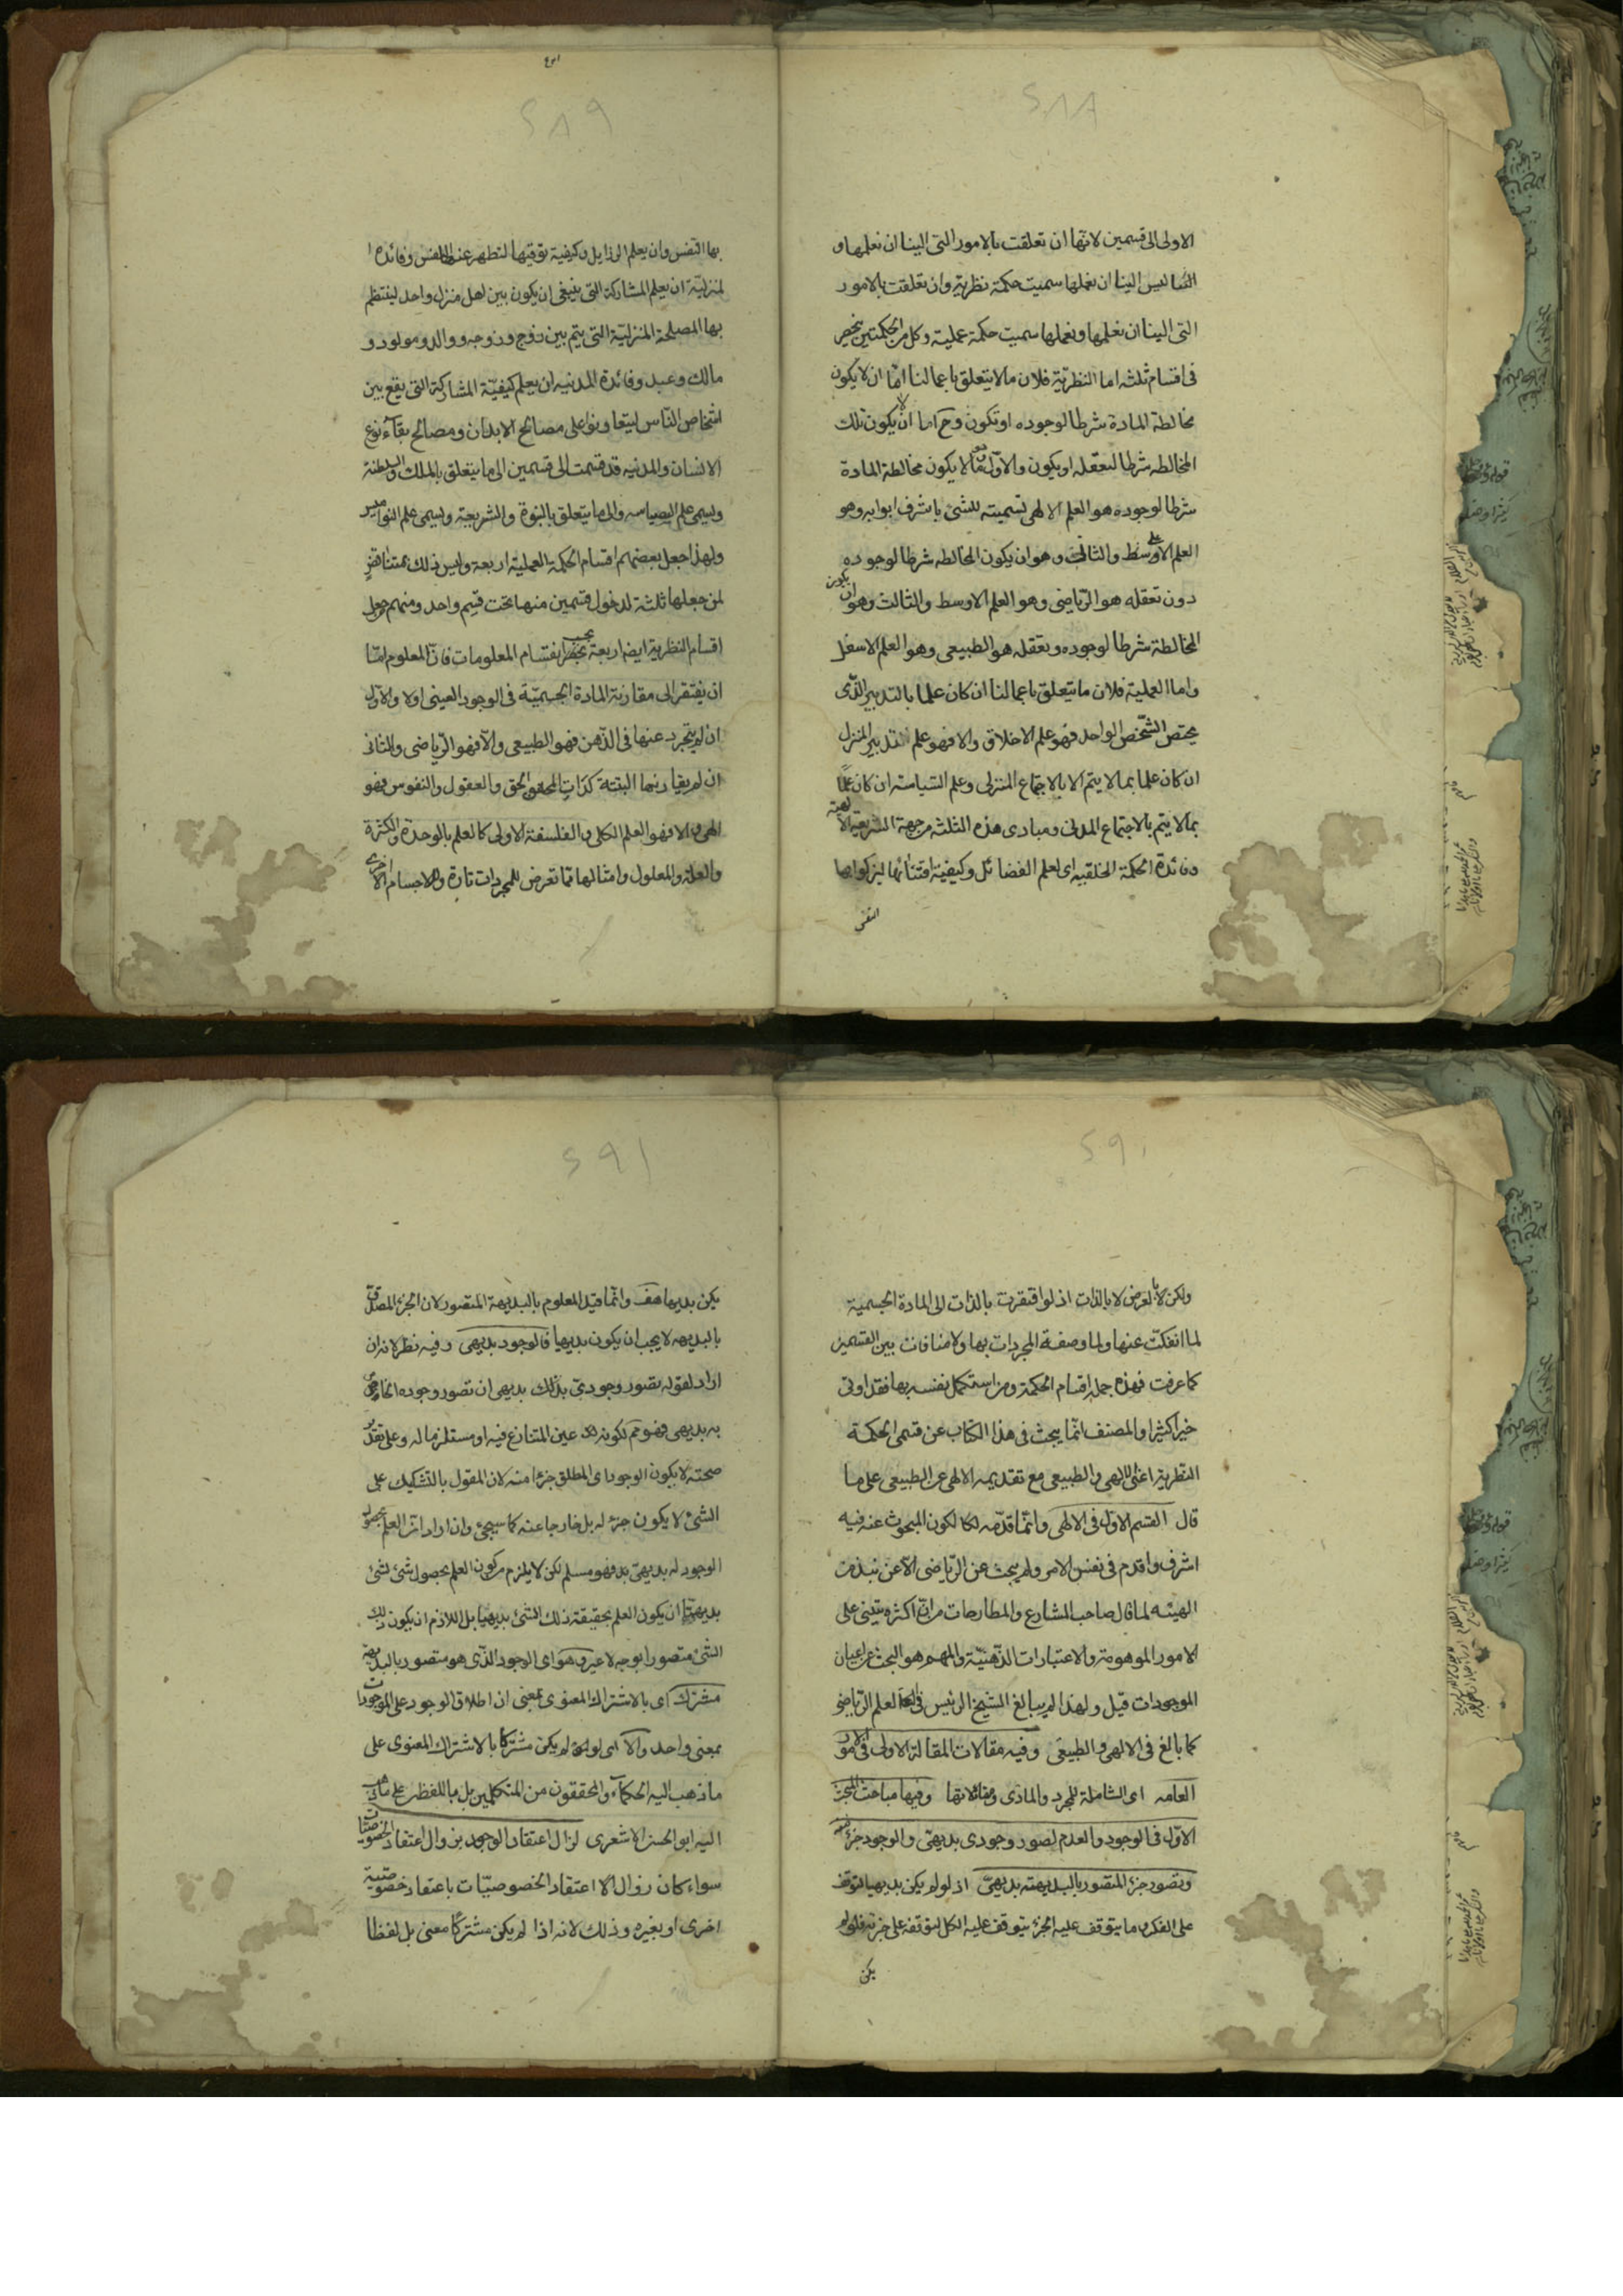 ٢٨٨
الاولى الى قسمين لانها ان تعلقت بالامور التى الينا ان نعلمها و
ليس الينا ان نعملها سميت حكمة نظرية وان تعلقت بالامور
التى الينا ان نعلمها ونعملها سميت حكمة عملية وكل من الحكمتين ينحصر
فى اقسام ثلثه اما النظرية فلان ما لا يتعلق باعمالنا امّا ان لا يكون
مخالطة المادة شرطا لوجوده او تكون وح اما ان لا يكون تلك
المخالطه شرطا لتعقله او يكون والاول وهو ما لا يكون مخالطة المادة
شرطا لوجوده هو العلم الالهى تسميته للشئ باشرف ابوابه وهو
العلم الاعلى والثانى وهو ان يكون المخالطه شرطا لوجوده
دون تعقله هو الرياضى وهو العلم الاوسط والثالث وهو ان يكون
المخالطة شرطا لوجوده وتعقله هو الطبيعى وهو العلم الاسفل
واما العملية فلان ما يتعلق باعمالنا ان كان علما بالتدبير الذى
يختص الشخص الواحد فهو علم الاخلاق والا فهو علم تدبير المنزل
ان كان علما بما لا يتم الا بالاجتماع المنزلى وعلم السياسة ان كان علما
بما لا يتم بالاجتماع المدنى ومبادى هذه الثلثة من جهة الشريعة الالهية
وفائدة الحكمة الخلقيه اى لعلم الفضائل وكيفية اقتنائها ليزكوا بها
النفس
٢٨٩
بها النفس وان يعلم الرذايل وكيفية توقيها لتطهر عنها النفس وفائدة ا
لمنزلية ان يعلم المشاركة التى ينبغى ان يكون بين اهل منزل واحد لينتظم
بها المصلحة المنزلية التى يتم بين زوج وزوجه ووالد ومولود و
مالك وعبد وفائدة المدنيه ان يعلم كيفية المشاركة التى يقع بين
اشخاص الناس ليتعاونوا على مصالح الابدان ومصالح بقاء نوع
الانسان والمدنيه قد قسمت الى قسمين الى ما يتعلق بالملك والسلطنة
ويسمى علم السياسه والى ما يتعلق بالنبوة والشريعة ويسمى علم النواميس
ولهذا جعل بعضهم اقسام الحكمة العملية اربعة وليس ذلك بمتناقض
لمن جعلها ثلثة لدخول قسمين منها تحت قسم واحد ومنهم من جعل
اقسام النظرية ايضا اربعة بحسب انقسام المعلومات فان المعلوم امّا
ان يفتقر الى مقارنة المادة الجسمية فى الوجود العينى اولا والاول
ان لم يتجرد عنها فى الذهن فهو الطبيعى والا فهو الرياضى والثانى
ان لم يقارنها البتة كذات الحق والعقول والنفوس فهو
الهى والا فهو العلم الكلى والفلسفة الاولى كالعلم بالوحدة والكثرة
والعلة والمعلول وامثالها مما تعرض للمجردات تارة وللاجسام الاخرى
٢٩٠
ولكن لا بالعرض لا بالذات اذ لو افتقرت بالذات الى المادة الجسمية
لما انفكت عنها ولما وصفة المجردات بها ولا منافات بين القسمين
كما عرفت فهذه جملة اقسام الحكمة ومن استكمل نفسه بها فقد اوتى
خيرا كثيرا والمصنف انما يبحث فى هذا الكتاب عن قسمى الحكمة
النظرية اعنى الالهى والطبيعى مع تقديمه الالهى عن الطبيعى على ما
قال القسم الاول فى الالهى وانما قدّمه لكا لكون المبحوث عنه فيه
اشرف واقدم فى نفس الامر ولم يبحث عن الرياضى الا عن نبذ من
الهيئه لما قال صاحب المشارع والمطارحات من ان اكثره يبتنى على
الامور الموهومة والاعتبارات الذهنية والمهم هو البحث عن اعيان
الموجودات قيل ولهذا لم يبالغ الشيخ الرئيس فى العلم الرياضى
كما بالغ فى الالهى والطبيعى وفيه مقالات المقالة الاولى فى الامور
العامه اى الشاملة للمجرد والمادى وفيها مباحث المبحث
الاول فى الوجود والعدم تصور وجودى بديهى والوجود جزء منه
وتصور جزء المتصور بالبديهته بديهى اذ لو لم يكن بديهيا لتوقف
على الفكر وما يتوقف عليه الجزء يتوقف عليه الكل لتوقفه على جزئه فلو لم
يكن
٢٩١
يكن بديهيا هف وانما قيد المعلوم بالبديهة المتصور لان الجزء المصدق
بالبديهه لا يجب ان يكون بديهيا فالوجود بديهى وفيه نظر لانه ان
اراد لقوله تصور وجودى بديهى ان تصور وجوده الخاص
به بديهى فهو مم لكونه عين المتنازع فيه او مستلزما له وعلى تقدير
صحته لا يكون الوجود اى المطلق جزءا منه لان المقول بالتشكيك على
الشئ لا يكون جزء له بل خارجا عنه كما سيجئ وان اراد ان العلم بحصول
الوجود له بديهى فهو مسلم لكن لا يلزم من كون العلم بحصول شئ لشئ
بديهيا ان يكون العلم بحقيقة ذلك الشئ بديهيا بل اللازم ان يكون ذلك
الشئ متصورا بوجه لا غير وهو اى الوجود الذى هو متصور بالبديهة
مشترك اى بالاشتراك المعنوى بمعنى ان اطلاق الوجود على الموجودات
بمعنى واحد والا اى لو لم يكن مشتركا بالاشتراك المعنوى على
ما ذهب اليه الحكماء والمحققون من المتكلمين بل باللفظ على ما ذهب
اليه ابو الحسن الاشعرى لزال اعتقاد الوجود بزوال اعتقاد الخصوصيات
سواء كان زوال اعتقاد الخصوصيات باعتقاد خصوصية
اخرى او بغيره وذلك لانه اذا لم يكن مشتركا معنى بل لفظا